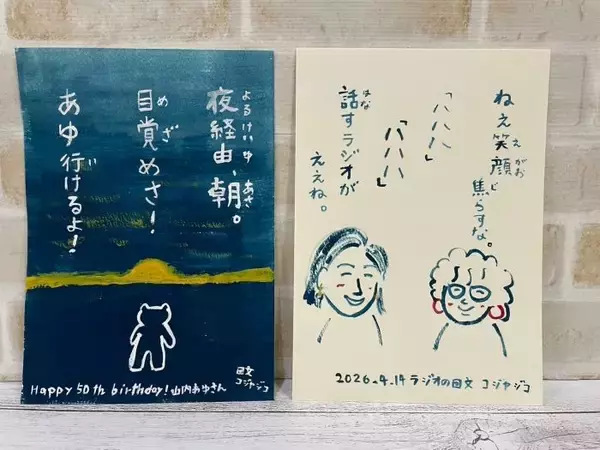 よる けいゆ あさ
夜経由、朝。
め ざ
目覚めさ!
い
あゆ行けるよ!
Happy 50th birthday! 山内あゆさん
回文
コジヤジコ
え がお
ねえ笑顔
じ
焦らすな。
「ハハハ」
「ハハハ」
はな
話すラジオが
ええね。
2026.4.14 ラジオの回文 コジヤジコ